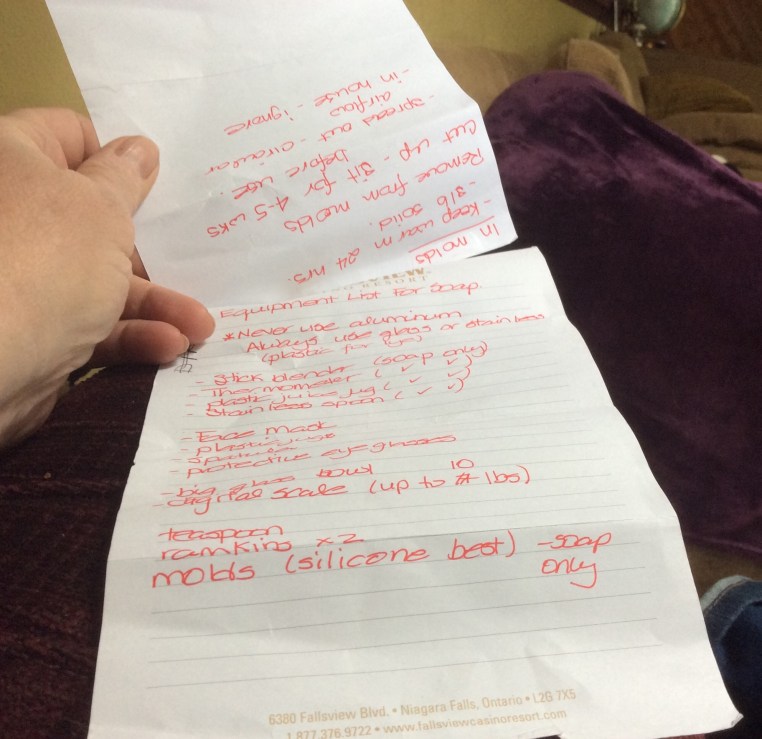 in molds
- keep warm 24 hrs.
- slb solid.
Remove from molds
cut up - sit for 4-5 wks
before use
- spread out - circular
airflow
- in house - ignore
RESORT
Equipment List For Soap.
*Never use aluminum
Always use glass or stainless
(plastic for lye)
- Stick blender (soap only)
- Thermometer (✓ ✓)
- plastic juice jug (✓ ✓)
- Stainless spoon (✓ ✓)
- Face mask
- plastic jug
- spatula
- protective eyeglasses
- big glass bowl
- digital scale (up to 10 lbs)
teaspoon
ramkins x2
molds (silicone best) - soap
only
6380 Fallsview Blvd. • Niagara Falls, Ontario • L2G 7X5
1.877.376.9722 • www.fallsviewcasinoresort.com